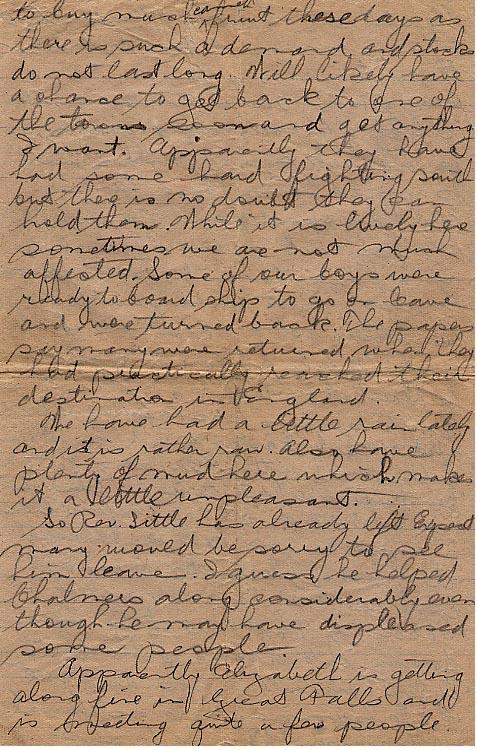 to buy much canned fruit these days as
there is such a demand and stocks
do not last long. Will likely have
a chance to get back to one of
the towns soon and get anything
I want. Apparently they have
had some hard fighting south
but there is no doubt they can
hold them. While it is lively here
sometimes we are not much
affected. Some of our boys were
ready to board ship to go on leave
and were turned back. The papers
say many were returned when they
had practically reached their
destination in England.
We have had a little rain lately
and it is rather raw. Also have
plenty of mud here which makes
it a little unpleasant.
So Rev. Little has already left. Expect
many would be sorry to see
him leave. I guess he helped
Chalmers along considerably even
though he may have displeased
some people.
Apparently Elizabeth is getting
along fine in Great Falls and
is meeting quite a few people.